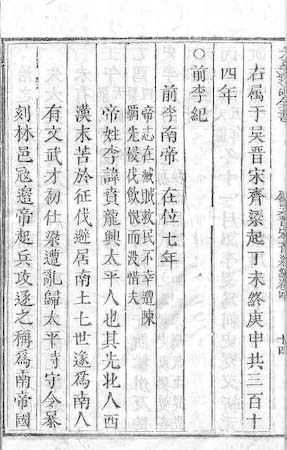 右屬于吳晉宋齊梁起丁未終庚申共三百十
四年
○前李紀
前李南帝 在位七年
帝志在滅賊救民不幸遭陳
霸先侵伐飲恨而没惜夫
帝姓李諱賁龍興太平人也其先北人西
漢末苦於征伐避居南土七世遂爲南人
有文武才初仕梁遭亂歸太平時守令暴
刻林邑寇邉帝起兵攻逐之稱爲南帝國
十四